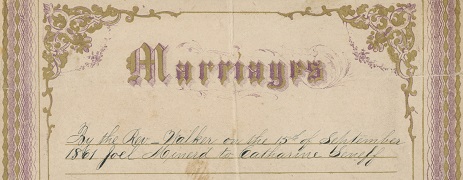 Marriages
By the Rev Walker on the 15th of September
1861 Joel Minerd to Catharine